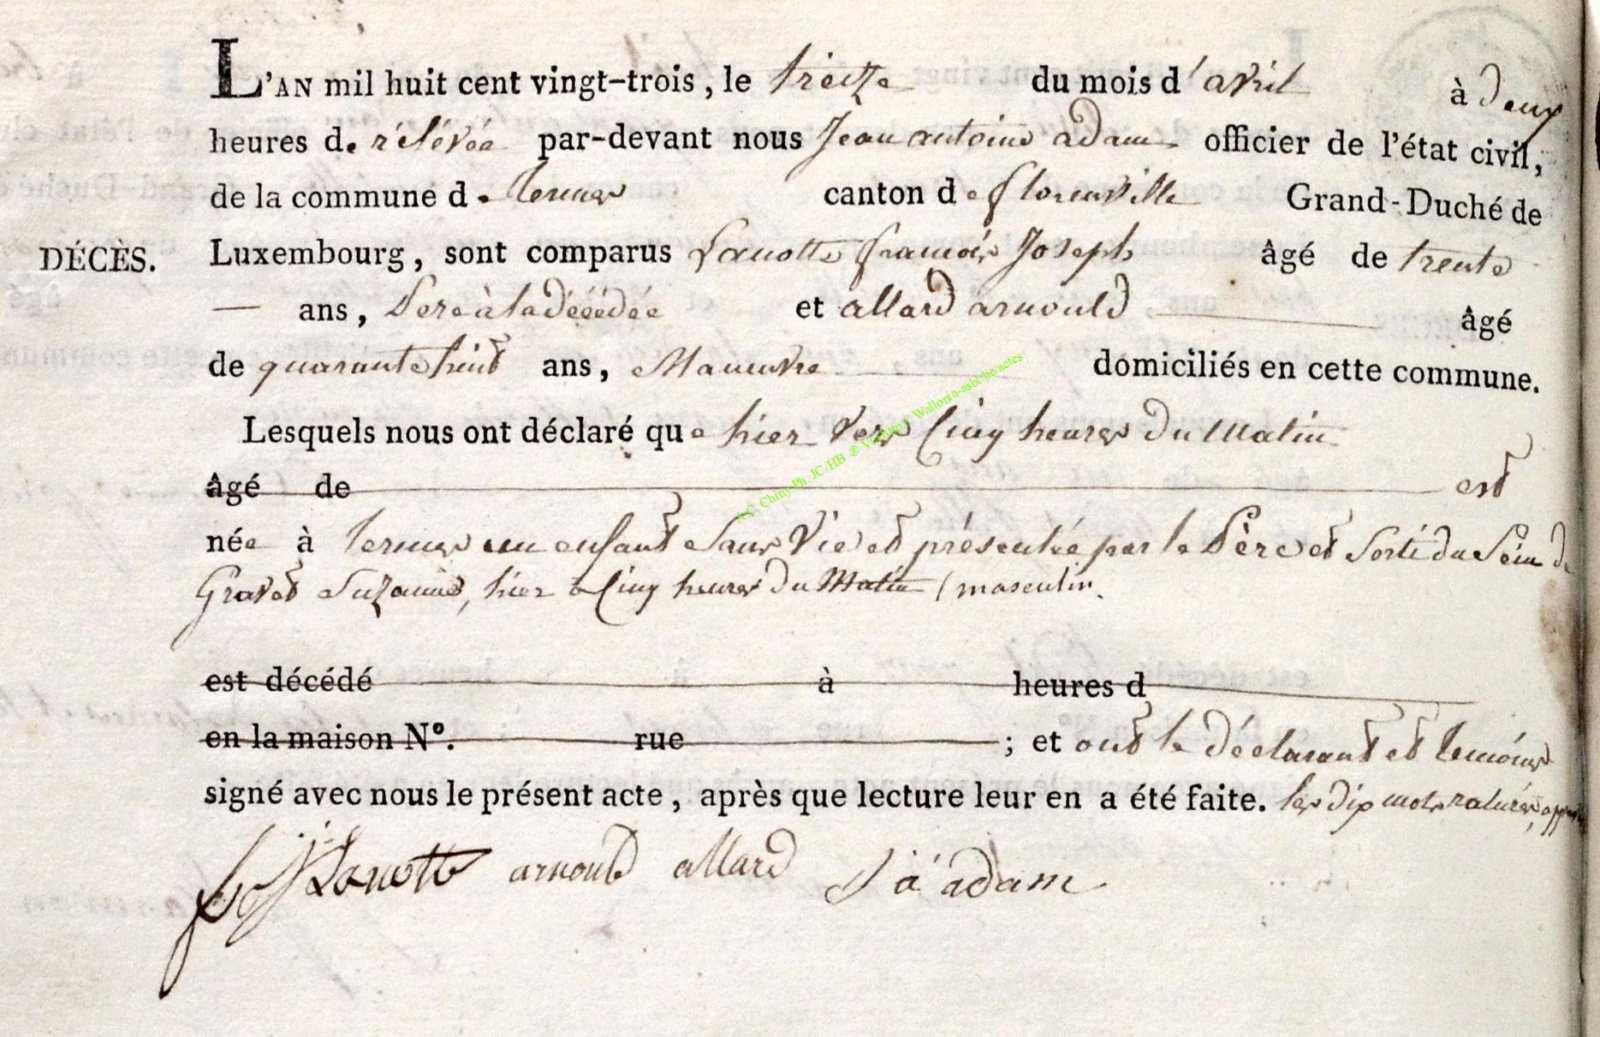 L'AN mil huit cent vingt-trois, le treize du mois d'avril à deux
heures de rélévée par-devant nous Jean antoine adam officier de l'état civil,
de la commune de termes canton de florenville Grand-Duché de
DÉCÈS. Luxembourg, sont comparus Lanotte francois Joseph âgé de trente
— ans, Pere à la décédée et allard arnould âgé
de quarante huit ans, Manuvre domiciliés en cette commune.
Lesquels nous ont déclaré que hier vers Cinq heures Du Matin
âgé de est
née à termes un enfant Sans Vie et présentée par le Père et Sorti du Sein de
Gravet Suzanne, hier a Cinq heures Du Matin / masculin.
est décédé à heures d
en la maison N°. rue ; et ont le déclarant et temoins
signé avec nous le présent acte, après que lecture leur en a été faite. les dix mots raturés,
Lanotte arnould allard J a adam